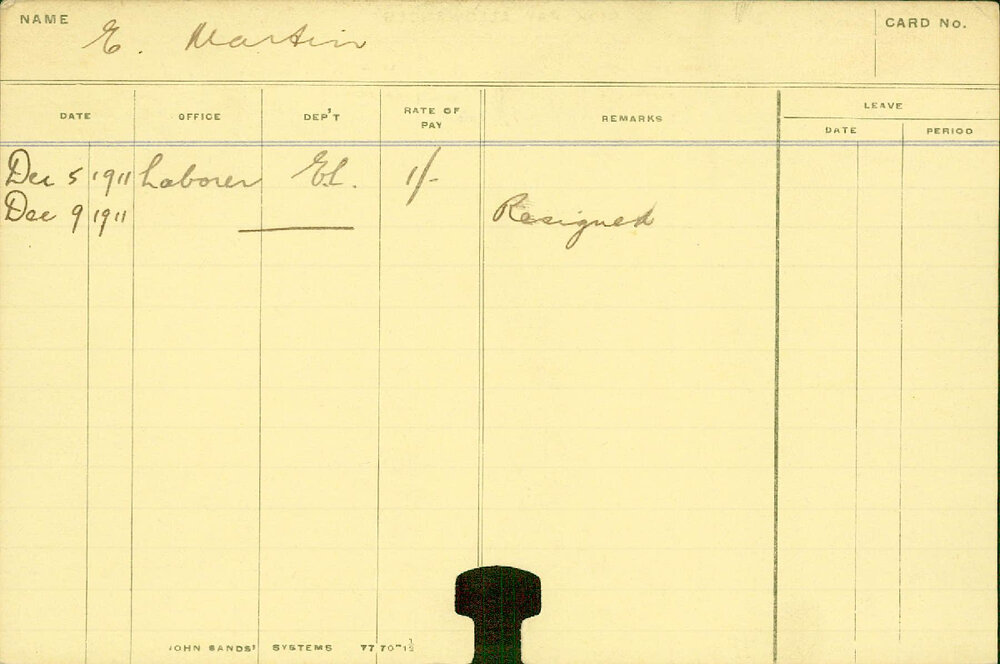 NAME E. Martin CARD No.
DATE OFFICE DEP'T RATE OF PAY REMARKS LEAVE
DATE PERIOD
Dec 5 1911 Laborer El. 1/-
Dec 9 1911 Resigned
JOHN SANDS' SYSTEMS